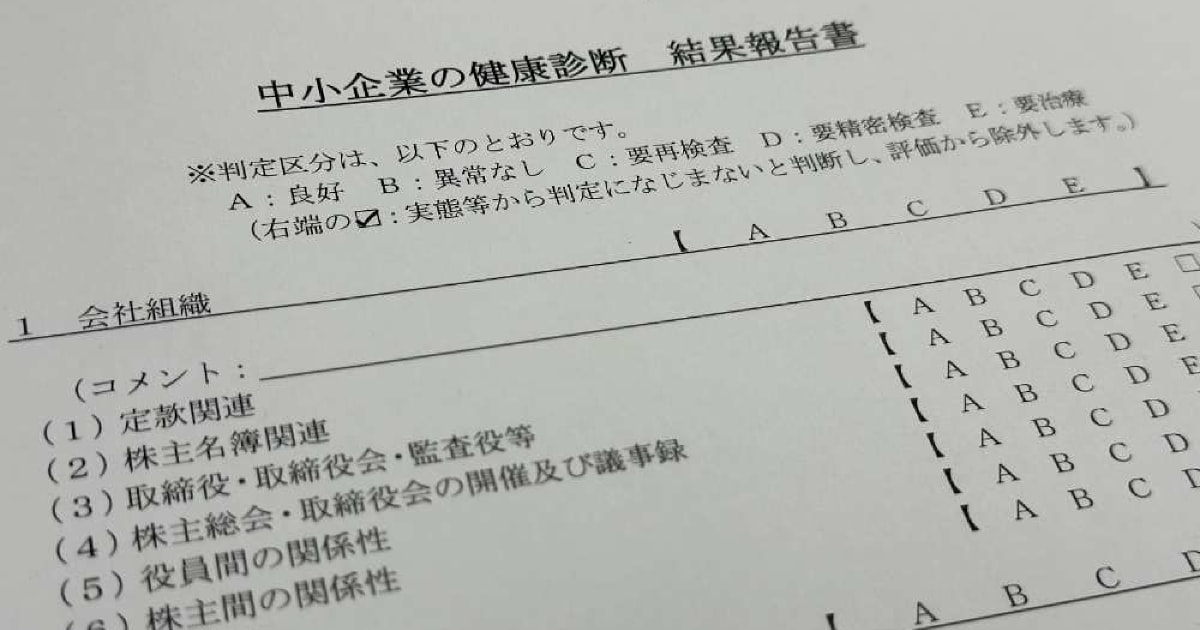 中小企業の健康診断 結果報告書
※判定区分は、以下のとおりです。
A:良好 B:異常なし C:要再検査 D:要精密検査 E:要治療
(右端の☑:実態等から判定になじまないと判断し、評価から除外します。)
1 会社組織 【 A B C D E 】
(コメント:
(1)定款関連 【 A B C D E □
(2)株主名簿関連 【 A B C D E
(3)取締役・取締役会・監査役等 【 A B C D E
(4)株主総会・取締役会の開催及び議事録 【 A B C D E
(5)役員間の関係性 【 A B C D
(6)株主間の関係性 【 A B C D
【 A B C D
【 A B C D